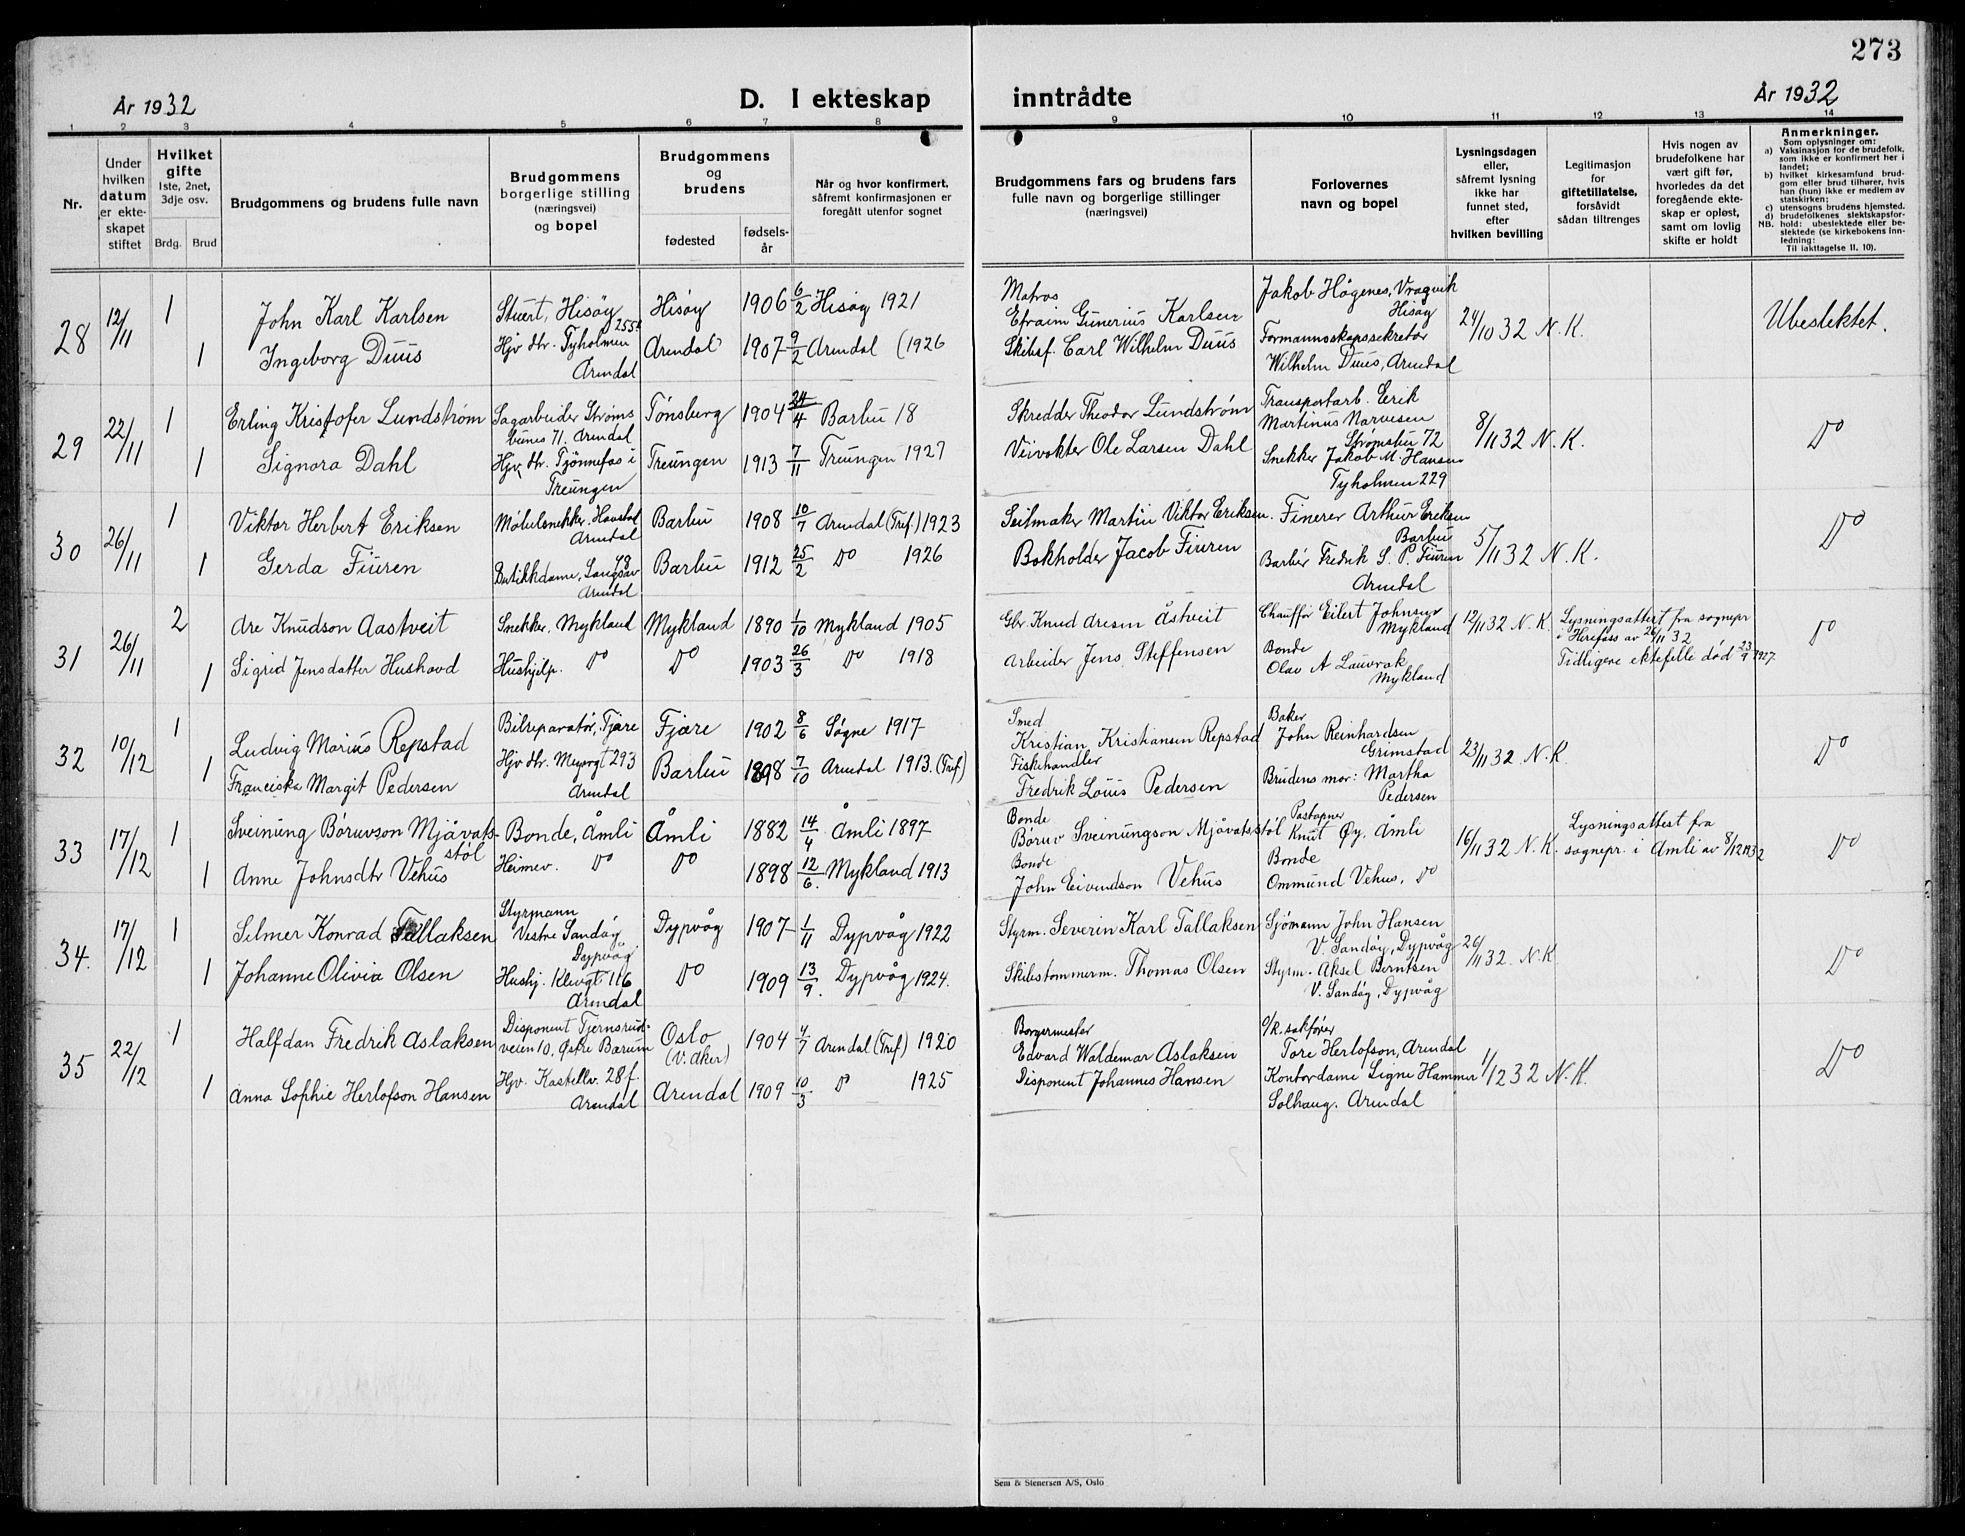 273
År 1932
D. I ekteskap inntrådte
År 1932
1 2 3 4 5 6 7 8 9 10 11 12 13 14
Nr.
Under hvilken datum er ekteskapet stiftet
Hvilket gifte
1ste, 2net, 3dje osv.
Brdg. Brud
Brudgommens og brudens fulle navn
Brudgommens borgerlige stilling (næringsvei) og bopel
Brudgommens og brudens
fødested
fødselsår
Når og hvor konfirmert, såfremt konfirmasjonen er foregått utenfor sognet
Brudgommens fars og brudens fars fulle navn og borgerlige stillinger (næringsvei)
Forlovernes navn og bopel
Lysningsdagen eller, såfremt lysning ikke har funnet sted, efter hvilken bevilling
Legitimasjon for giftetillatelse, forsåvidt sådan tiltrenges
Hvis nogen av brudefolkene har vært gift før, hvorledes da det foregående ekteskap er opløst, samt om lovlig skifte er holdt
Anmerkninger.
Som oplysninger om:
a) Vaksinasjon for de brudefolk, som ikke er konfirmert her i landet;
b) hvilket kirkesamfund brudgom eller brud tilhører, hvis han (hun) ikke er medlem av statskirken;
c) utensogns brudens hjemsted.
d) brudefolkenes slektskapsforhold: ubeslektede eller beslektede (se kirkebokens innledning:
NB.
Til iakttagelse II, 10).
28 12/11 1 John Karl Karlsen Stuert, Hisøy Hisøy 1906 6/2 Hisøy 1921
1 Ingeborg Duus Hjv. str. Tyholmen 255 Arendal Arendal 1907 9/2 Arendal (1926
Matros
Efraim Gunerius Karlsen
Skibsf. Carl Wilhelm Duus
Jakob Hågenes, Vragvik
Hisøy
Formannsskapssekretær
Wilhelm Duus, Arendal
24/10 32 N.K. Ubeslektet.
29 22/11 1 Erling Kristofer Lundstrøm Sagarbeider Strømsbuns 71. Arendal Tønsberg 1904 24/4 Barbu 18
1 Signora Dahl Hjv. str. Tjønnefos i Treungen Treungen 1913 7/11 Treungen 1927
Skredder Theodor Lundstrøm
Veivokter Ole Larsen Dahl
Transportarb. Erik
Martinus Narvesen
Strømsbu 72
Snekker Jakob M. Hansen
Tyholmen 229
8/11 32 N.K. Do
30 26/11 1 Viktor Herbert Eriksen Møbelsnekker. Havstad Arendal Barbu 1908 10/7 Arendal (Tref.) 1923
1 Gerda Fiuren Butikkdame, Langsæv 48 Arendal Barbu 1912 25/2 Do 1926
Seilmaker Martin Viktor Eriksen.
Bokholder Jacob Fiuren
Finerer Arthur Eriksen
Barbu
Barbér Fredrik S. P. Fiuren
Arendal
5/11 32 N.K. Do
31 26/11 2 Are Knudson Aastveit Snekker, Mykland Mykland 1890 1/10 Mykland 1905
1 Sigrid Jensdatter Hushovd Hushjelp. Do Do 1903 26/3 Do 1918
Gbr. Knud Aresen Åstveit
Arbeider Jens Steffensen
Chauffør Eilert Johnsen
Mykland
Bonde
Olav A Lauvrak
Mykland
12/11 32 N.K. Lysningsattest fra sognepr
i Herefoss av 26/11 32
Tidligere ektefelle død 23/9 1927. Do
32 10/12 1 Ludvig Marius Repstad Bilreparatør, Fjære Fjære 1902 8/6 Søgne 1917
1 Franciska Margit Pedersen Hjv. str. Meyergt 293 Arendal Barbu 1898 7/10 Arendal 1913. (Tref)
Smed
Kristian Kristiansen Repstad
Fiskehandler
Fredrik Louis Pedersen
Baker
John Reinhardsen
Grimstad
Brudens mor: Martha
Pedersen
23/11 32. N.K. Do
33 17/12 1 Sveinung Børuvson Mjåvatsstøl Bonde, Åmli Åmli 1882 14/4 Åmli 1897
1 Anne Johnsdtr Vehus Heimev. Do Do 1898 12/6. Mykland 1913
Bonde
Børuv Sveinungson Mjåvatsstøl
Bonde
John Eivindson Vehus
Postopner
Knut Øy. Åmli
Bonde
Ommund Vehus, Do
16/11 32 N.K. Lysningsattest fra
sognepr. i Åmli av 8/12 1932 Do
34. 17/12 1 Selmer Konrad Tallaksen Styrmann Vestre Sandøy Dypvåg Dypvåg 1907 1/11 Dypvåg 1922
1 Johanne Olivia Olsen Hushj. Klevgt 116 Arendal Do 1909 13/9. Dypvåg 1924.
Styrm. Severin Karl Tallaksen
Skibstømmerm. Thomas Olsen
Sjømann John Hansen
V. Sandøy, Dypvåg
Styrm. Aksel Berntsen
V. Sandøy, Dypvåg
26/11 32. N.K. Do
35 22/12 1 Halfdan Fredrik Aslaksen Disponent Tjernsrudveien 10, Østre Bærum Oslo (V. Aker) 1904 4/7 Arendal (Tref) 1920
1 Anna Sophie Herlofson Hansen Hjv. Kastellv. 28 f. Arendal Arendal 1909 10/3. Do 1925
Borgermester
Edvard Waldemar Aslaksen
Disponent Johannes Hansen
O/R. sakfører
Tore Herlofson, Arendal
Kontordame Signe Hammer
Solhaug. Arendal
1/12 32 N.K. Do
Sem & Stenersen A/S, Oslo